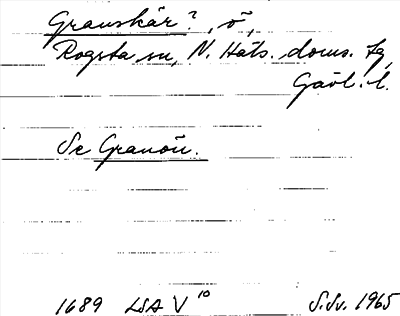 Granskär?, ö,
Rogsta sn, N. Häls. doms. fg,
Gävl. l.
Se Granön.
1689 LSA V 10 S.Sv. 1965